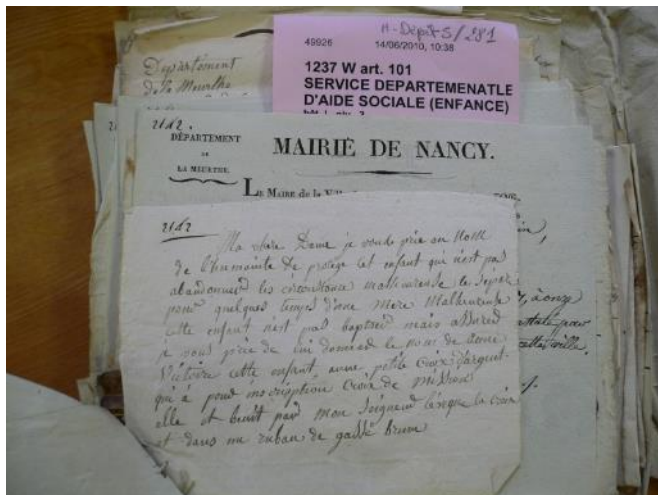 H-Dépôt 5/281
49926 14/06/2010, 10:38
1237 W art. 101
SERVICE DEPARTEMENATLE
D'AIDE SOCIALE (ENFANCE)
Département
de la Meurthe
21d2.
DÉPARTEMENT
DE
LA MEURTHE.
MAIRIE DE NANCY.
LE MAIRE de la
à onze
cette ville.
21d2
Ma chere Dame je voude prie au nom
de l'humanite de protege cet enfant qui n'est pas
abandonned les circonstance malheureuse le separe
pour quelques temps d'une mere malheureuse
cette enfant n'est pas baptised mais
je vous prie de lui donned le nom de anne
Victoire cette enfant, aune petite croix d'argent
qui a pour inscription Croix de mission
elle et benit pard mon seigneur leveque la croix
et dans un ruban de brun